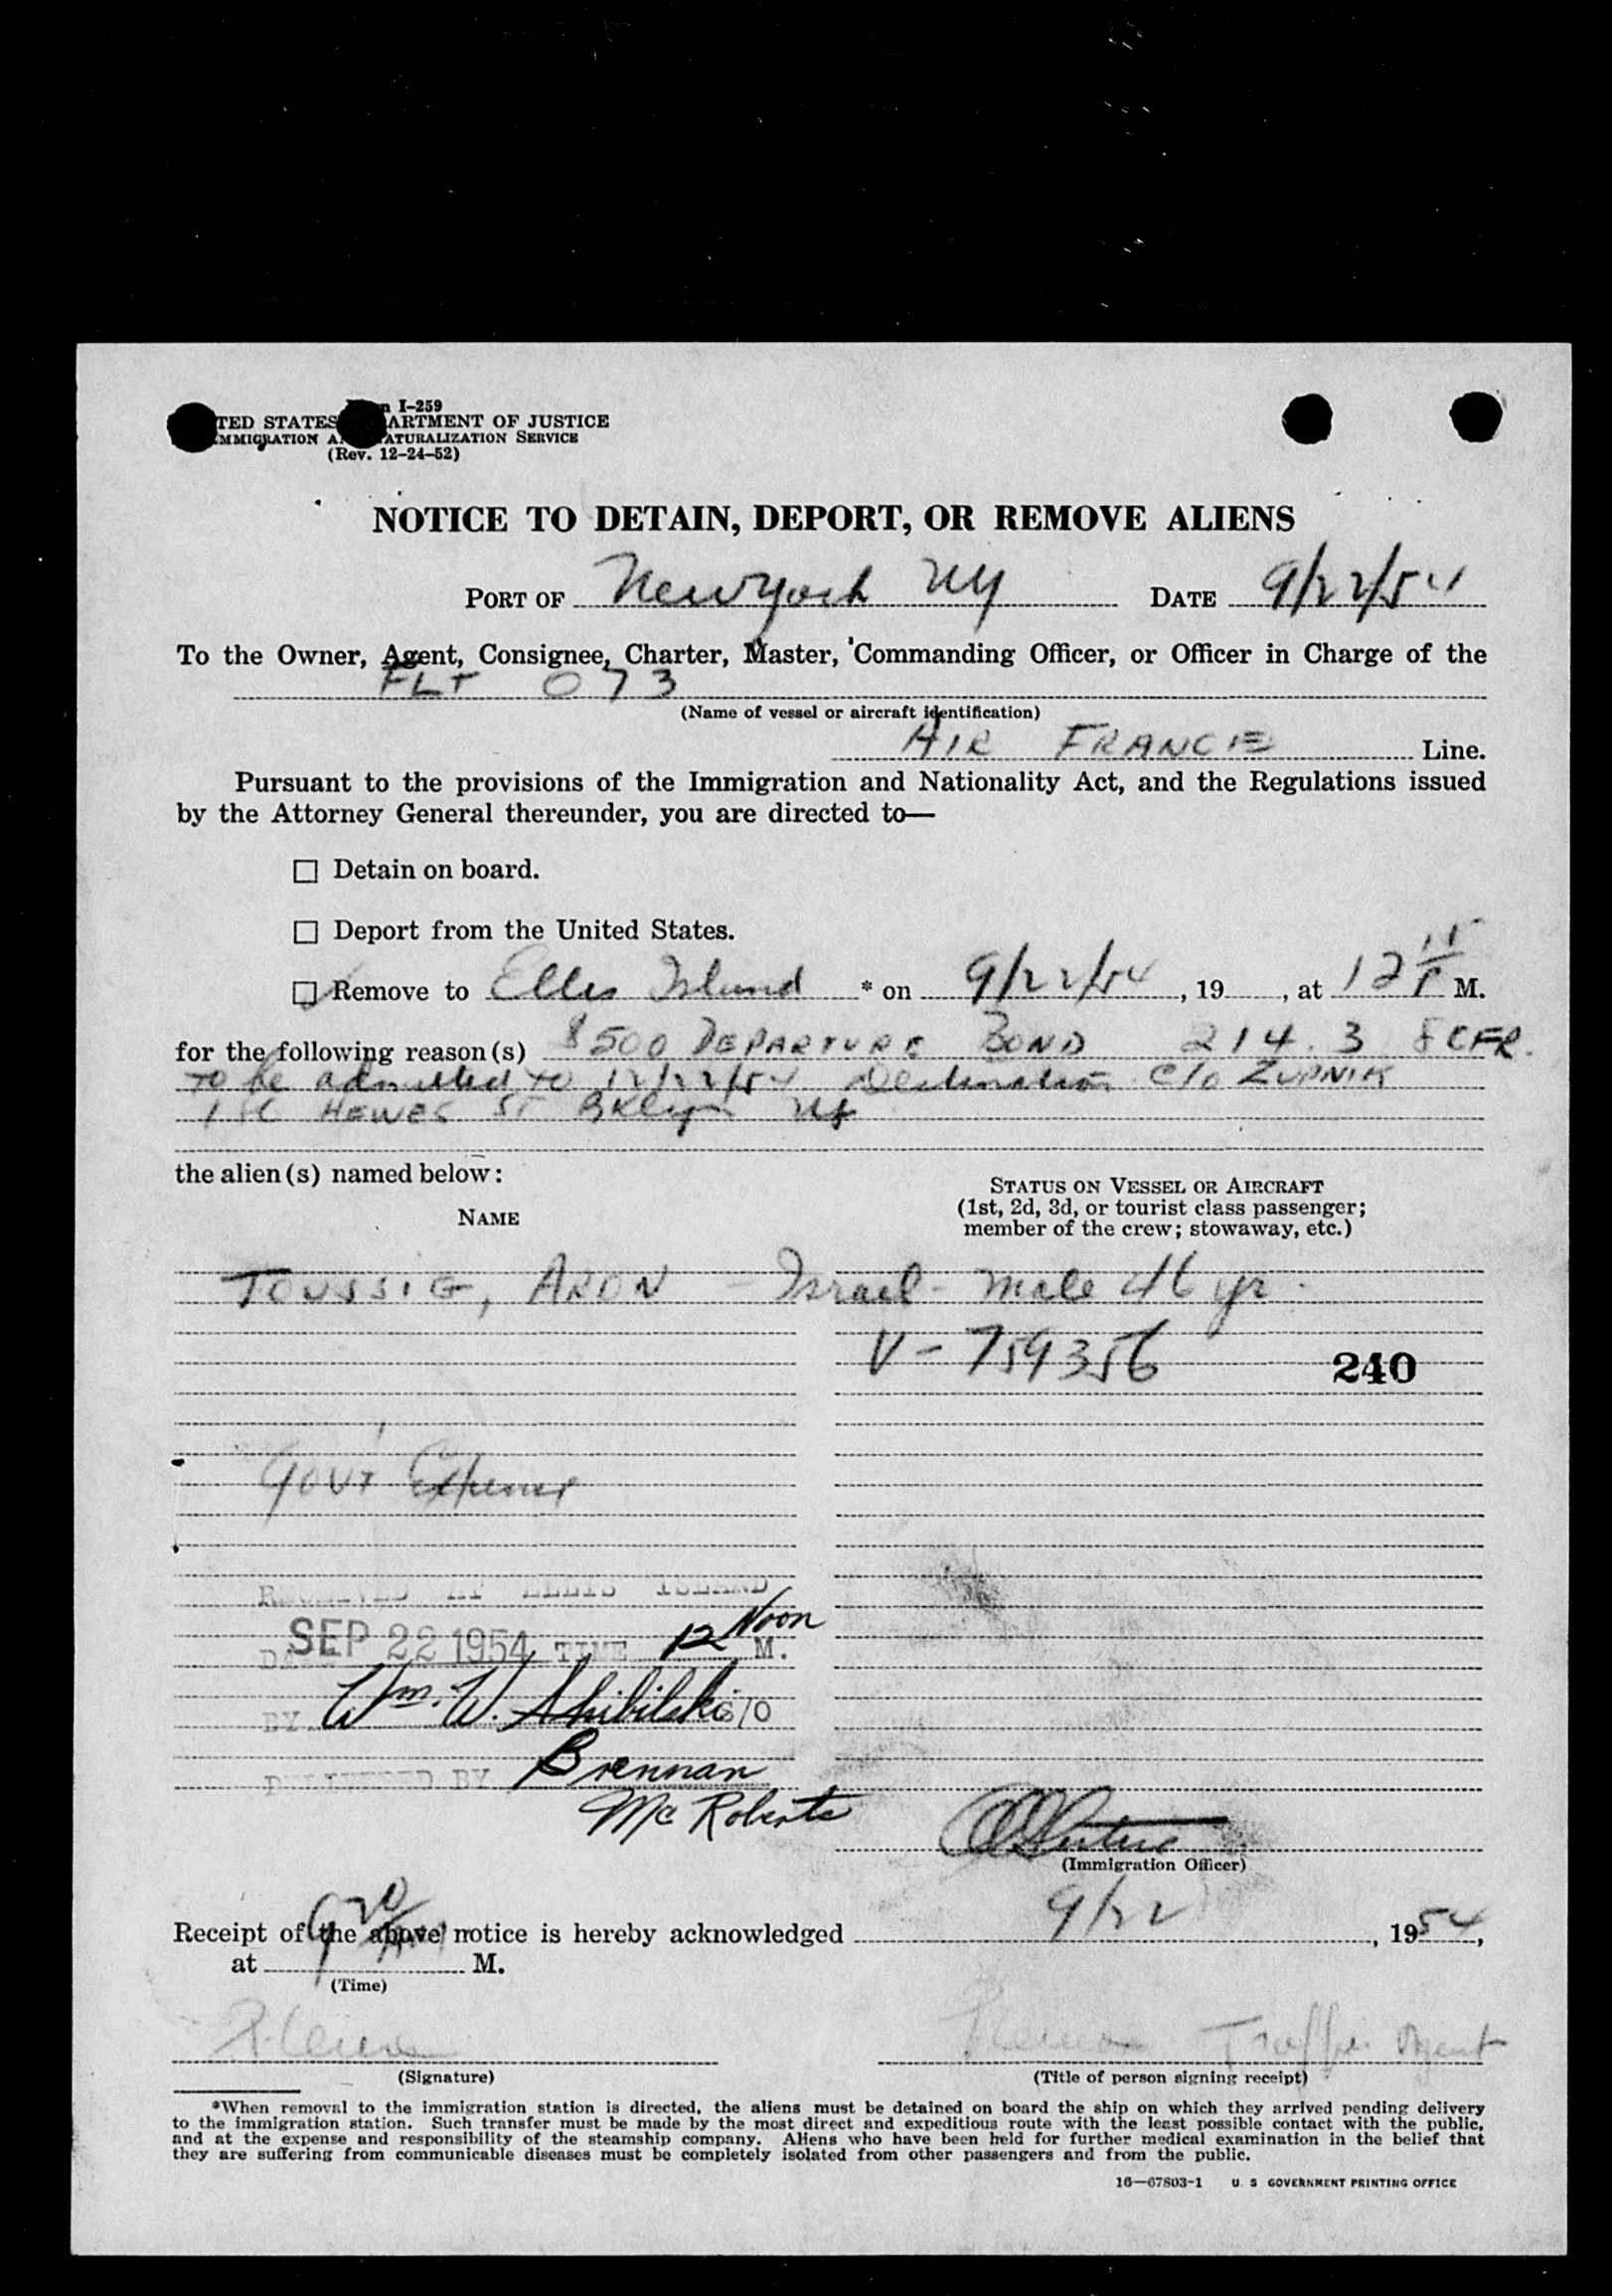 I-259
TED STATES ARTMENT OF JUSTICE
MMIGRATION A ATURALIZATION SERVICE
(Rev. 12-24-52)
NOTICE TO DETAIN, DEPORT, OR REMOVE ALIENS
PORT OF New York NY DATE 9/22/54
To the Owner, Agent, Consignee, Charter, Master, Commanding Officer, or Officer in Charge of the
FLT 073
(Name of vessel or aircraft identification)
AIR FRANCE Line.
Pursuant to the provisions of the Immigration and Nationality Act, and the Regulations issued
by the Attorney General thereunder, you are directed to—
☐ Detain on board.
☐ Deport from the United States.
☑ Remove to Ellis Island * on 9/22/54, 19 , at 12 15 P M.
for the following reason(s) $500 DEPARTURE BOND 214.3 8 CFR.
to be admitted to 12/22/54 Destination c/o ZUPNIK
HEWES ST BKlyn NY
the alien(s) named below:
NAME
STATUS ON VESSEL OR AIRCRAFT
(1st, 2d, 3d, or tourist class passenger;
member of the crew; stowaway, etc.)
TOUSSIG, ARON - Israel - male 46 yr.
V-759356
240
Govt Expense
RECEIVED AT ELLIS ISLAND
DATE SEP 22 1954 TIME 12 Noon M.
BY Wm. W. Shibilski S/O
DELIVERED BY Brennan
McRoberts
(Immigration Officer)
Receipt of the above notice is hereby acknowledged 9/22, 1954,
at M.
(Time)
Traffic Agent
(Signature)
(Title of person signing receipt)
*When removal to the immigration station is directed, the aliens must be detained on board the ship on which they arrived pending delivery
to the immigration station. Such transfer must be made by the most direct and expeditious route with the least possible contact with the public,
and at the expense and responsibility of the steamship company. Aliens who have been held for further medical examination in the belief that
they are suffering from communicable diseases must be completely isolated from other passengers and from the public.
16—67803-1 U. S. GOVERNMENT PRINTING OFFICE